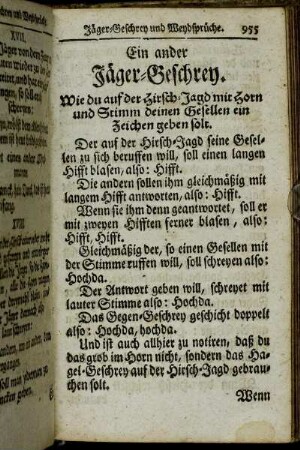 Jäger-Geschrey und Weydsprüche. 955
Ein ander
Jäger-Geschrey.
Wie du auf der Hirsch-Jagd mit Horn
und Stimm deinen Gesellen ein
Zeichen geben solt.
Der auf der Hirsch-Jagd seine Gesel-
len zu sich beruffen will, soll einen langen
Hifft blasen, also: Hifft.
Die andern sollen ihm gleichmäßig mit
langem Hifft antworten, also: Hifft.
Wenn sie ihm denn geantwortet, soll er
mit zweyen Hifften ferner blasen, also:
Hifft, Hifft.
Gleichmäßig der, so einen Gesellen mit
der Stimme ruffen will, soll schreyen also:
Hochda.
Der Antwort geben will, schreyet mit
lauter Stimme also: Hochda.
Das Gegen-Geschrey geschicht doppelt
also: Hochda, hochda.
Und ist auch allhier zu notiren, daß du
das grob im Horn nicht, sondern das Ha-
gel-Geschrey auf der Hirsch-Jagd gebrau-
chen solt.
Wenn
XVII.
XVIII